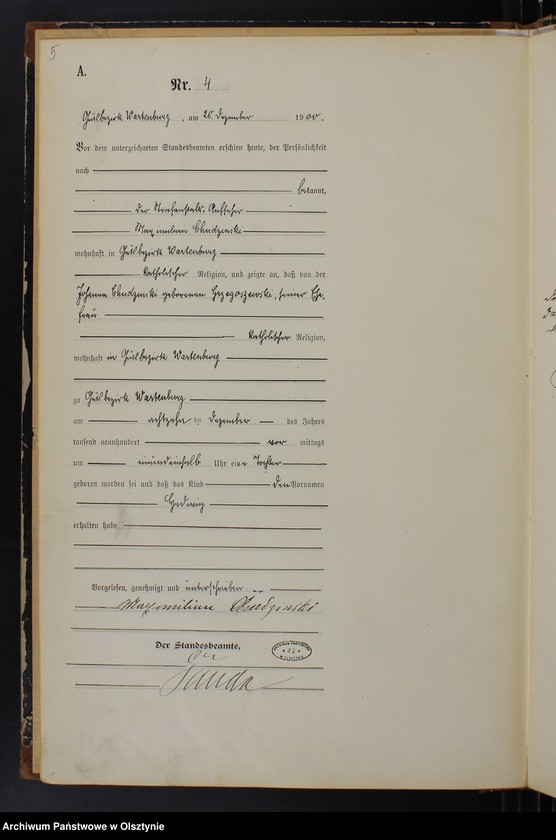 5
A.
Nr. 4
Gutsbezirk Wartenburg, am 20. Dezember 1900.
Vor dem unterzeichneten Standesbeamten erschien heute, der Persönlichkeit
nach
bekannt,
der Strafanstalts-Aufseher
Maximilian Chudzinski
wohnhaft in Gutsbezirk Wartenburg
katholischer Religion, und zeigte an, daß von der
Johanna Chudzinski geborenen Grzegorzewski, seiner Ehe-
frau
katholischer Religion,
wohnhaft in Gutsbezirk Wartenburg
zu Gutsbezirk Wartenburg
am achtzehn ten Dezember des Jahres
tausend neunhundert vor mittags
um Uhr eine Tochter
geboren worden sei und daß das Kind den Vornamen
Hedwig
erhalten habe
Vorgelesen, genehmigt und unterschrieben
Maximilian Chudzinski
Der Standesbeamte,
Archiwum Państwowe w Olsztynie